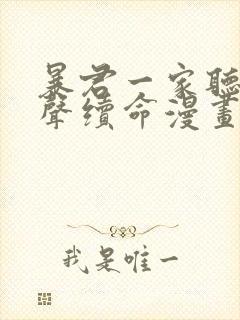 暴君一家聽
聲續命漫畫
我是唯一